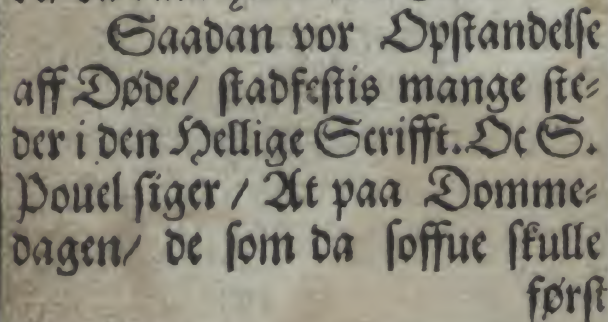 Saadan vor Opstandelse
aff Døde/ stadfestis mange ste-
der i den Hellige Scrifft. Oc S.
Pouel siger / At paa Domme-
dagen/ de som da soffue skulle
først